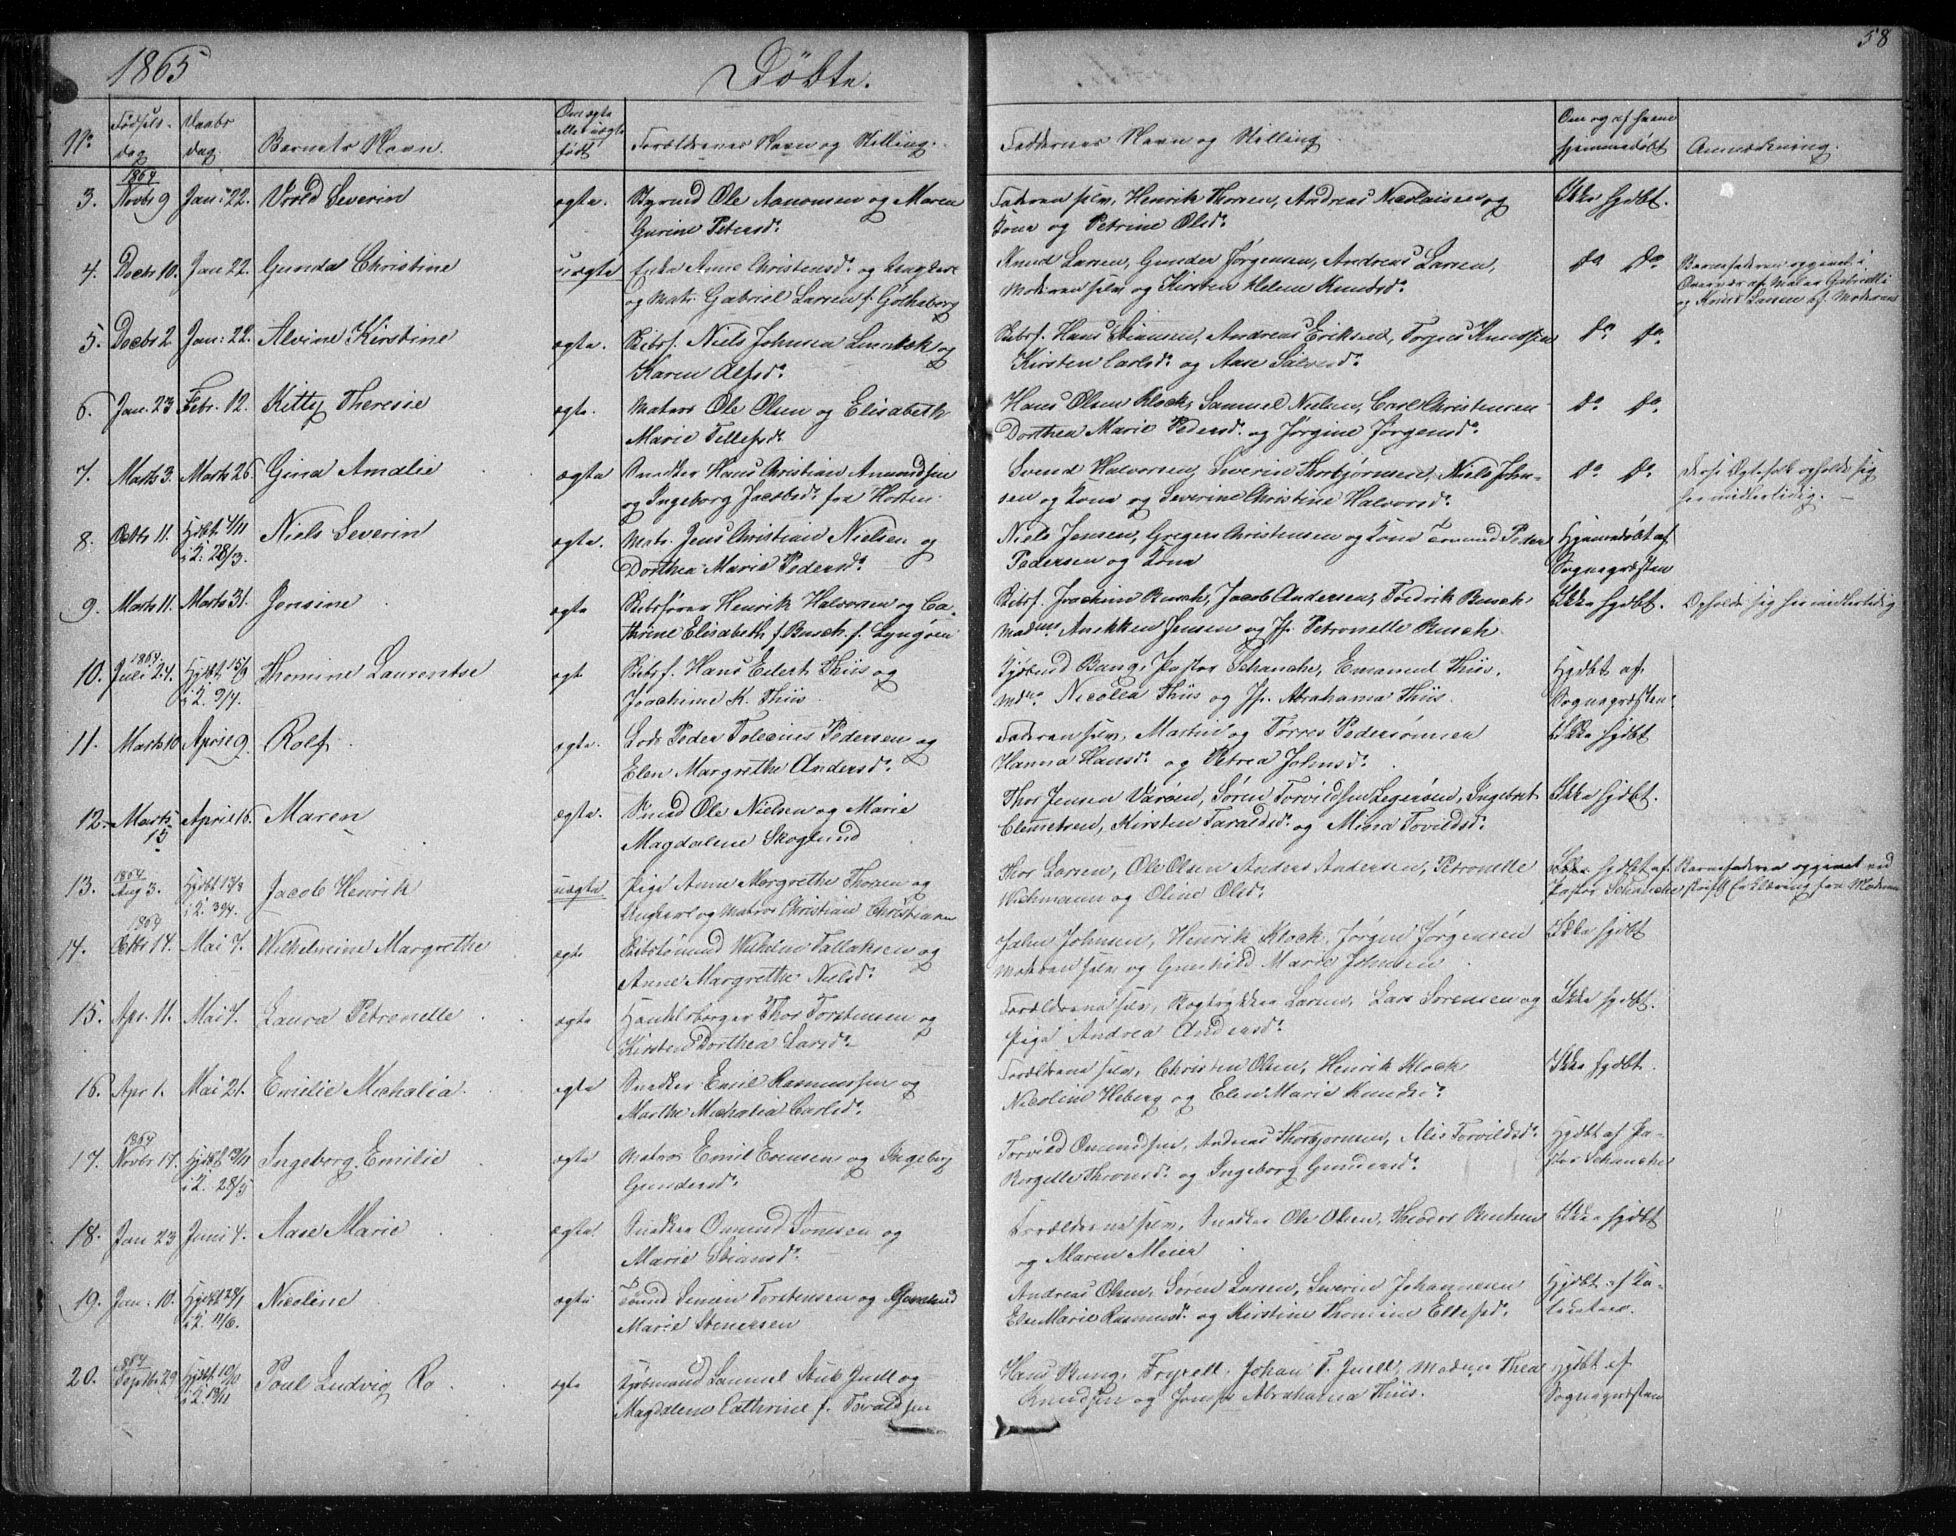 1865
Döbte.
58
No
Födsels-
dag
Daabs
dag
Barnets Navn.
Om ægte
eller uægte
födt
Forældrenes Navn og Stilling.
Faddernes Navn og Stilling
Om og af hvem
hjemmedöbt
Anmærkning.
3. 1864 Novbr 9 Jan: 22. Severin ægte. Ole Aanonsen og Maren
Gurine Petersd.
Faderen selv, Henrik Thorsen, Andreas Nicolaisen og
Kone og Petrine Olsd.
Ikke hjdbt.
4. Decbr 10. Jan 22. Gunda Christine uægte Enke Anne Christensd. og
og Matr. Gabriel Larsen f. Götheborg
Knud Larsen, Gunder Jörgensen, Andreas Larsen,
Moderen selv og Kirsten Helene Knudsd.
do do
Barnefaderen opgivet i
og Knud Larsen af Moderen
5. Decbr 2 Jan: 22. Alvine Kirstine ægte. Skibsf. Niels Johnsen og
Karen Alfsd.
Skibsf. Hans Stiansen, Andreas Eriksen, Torjus Knudsen
Kirsten Carlsd. og Aase Salvesd.
do do
6. Jan. 23 Febr. 12. Kitty Theresie ægte. Matros Ole Olsen og Elisabeth
Marie Tellefsd.
Hans Olsen Klock, Samuel Nielsen, Carl Christensen
Dorthea Marie Pedersd. og Jörgine Jörgensd.
do do
7. Marts 3. Marts 26. Gina Amalie ægte Snedker Hans Christian Amundsen
og Ingeborg Jacobsd. fra Horten.
Svend Halvorsen, Severin Thorbjörnsen, Niels John-
sen og Kone og Severine Christine Halvorsd.
do do
Disse Ægtefolk opholde sig
her midlertidig.
8. Octbr 11. Hjdbt 4/11
i K. 28/3. Niels Severin ægte. Matr. Jens Christian Nielsen og
Dorthea Marie Pedersd.
Niels Jensen, Gregers Christensen og Kone Peder
Pedersen og Kone
Hjemmedöbt af
Sognepræsten
9. Marts 11. Marts 31. Jensine ægte Skibsförer Henrik Halvorsen og Ca-
thrine Elisabeth f. Busch f. Lyngören
Skibsf. Joachim Busch, Jacob Andersen, Fredrik Busch
Madme Anekken Jensen og Jfr. Petronelle Busch.
Ikke hjdbt.
Opholde sig her midlertidig
10. 1864 Juli 24. Hjdbt 15/9
i K. 9/4. Thomine Laurentse ægte Skibsf. Hans Eilert Thiis og
Joachime K. Thiis
Bang, Pastor Schanche, Emanuel Thiis,
Mdme Nicolea Thiis og Jfr. Abrahama Thiis.
Hjdbt af
Sognepræsten.
11. Marts 10 April 9. Rolf ægte. Lods Peder Tolenius Pedersen og
Elen Margrethe Andersd.
Faderen selv, Martin og Törres Pedersönnen
Hanna Hansd. og Petrea Johnsd.
Ikke hjdbt
12. Marts
15 April 16. Maren ægte. Ole Nielsen og Marie
Magdalene Skoglund
Thor Jensen Varöen, Sören Torvildsen Legeröen, Ingebret
Clemetsen, Kirsten Taraldsd. og Mina Tovildsd.
Ikke hjdbt.
13. 1864 Aug 3. Hjdbt
i K. 30/4. Jacob Henrik uægte Pige Anne Margrethe Thorsen og
Ungkarl og Matros Christian Christiansen
Thor Larsen, Ole Olsen Anders Andersen, Petronelle
Wichmann og Oline Olsd.
hjdbt af
Pastor Schanche
Barnefaderen opgivet ved
skriftl. Erklæring fra Moderen
14. 1864 Octbr 14. Mai 7. Wilhelmine Margrethe ægte Wilhelm Tallaksen og
Anne Margrethe Nielsd.
John Johnsen, Henrik Klock, Jörgen Jörgensen
Moderen selv og Gunhild Marie Johnsen.
Ikke hjdbt
15. Apr. 11. Mai 7. Laura Petronelle ægte Handelsborger Thor Torstensen og
Kirsten Dorthea Larsd.
Forældrene selv, Bogtrykker Larsen, Lars Sörensen og
Pige Andrea Andersd.
Ikke hjdbt.
16. Apr 1. Mai 21. Emilie Michalia. ægte Snedker Emil Rasmussen og
Marthe Michalia Carlsd.
Forældrene selv, Christen Olsen, Henrik Klock
Nicoline Heberg og Elen Marie Knudsd.
Ikke hjdbt.
17. 1864 Novbr 17. Hjdbt 19/11
i K. 28/5 Ingeborg Emilie ægte Matros Emil Evensen og Ingeborg
Gundersd.
Torvild Omundsen, Andreas Thorbjörnsen, Alis Torvildsd.
Thronsd. og Ingeborg Gundersd.
Hjdbt af Pa-
stor Schanche
18. Jan 23 Juni 4. Aase Marie ægte. Snedker Omund Tomsen og
Marie Stiansd.
Forældrene selv, Snedker Ole Olsen, Theodor Bentzen
og Maren Meier
Ikke hjdbt
19. Jan. 10. Hjdbt 28/1
i K. 11/6. Nicoline ægte Sömd Simen Torstensen og Gunhild
Marie Stenersen
Andreas Olsen, Sören Larsen, Severin Johannesen
Else Marie Rasmusd. og Kirstine Thomine Ellefsd.
Hjdbt af
20. 1864 Septbr 29 Hjdbt 10/10
i K. Poul Ludvig Ro ægte Sjömand Samuel Stub Juell og
Magdalene Cathrine f. Taraldsen
Hans Bang, Fryxell, Johan T. Juell, Madme Thea
Knudsen og Jomfr. Abrahama Thiis.
Hjdbt af
Sognepræsten